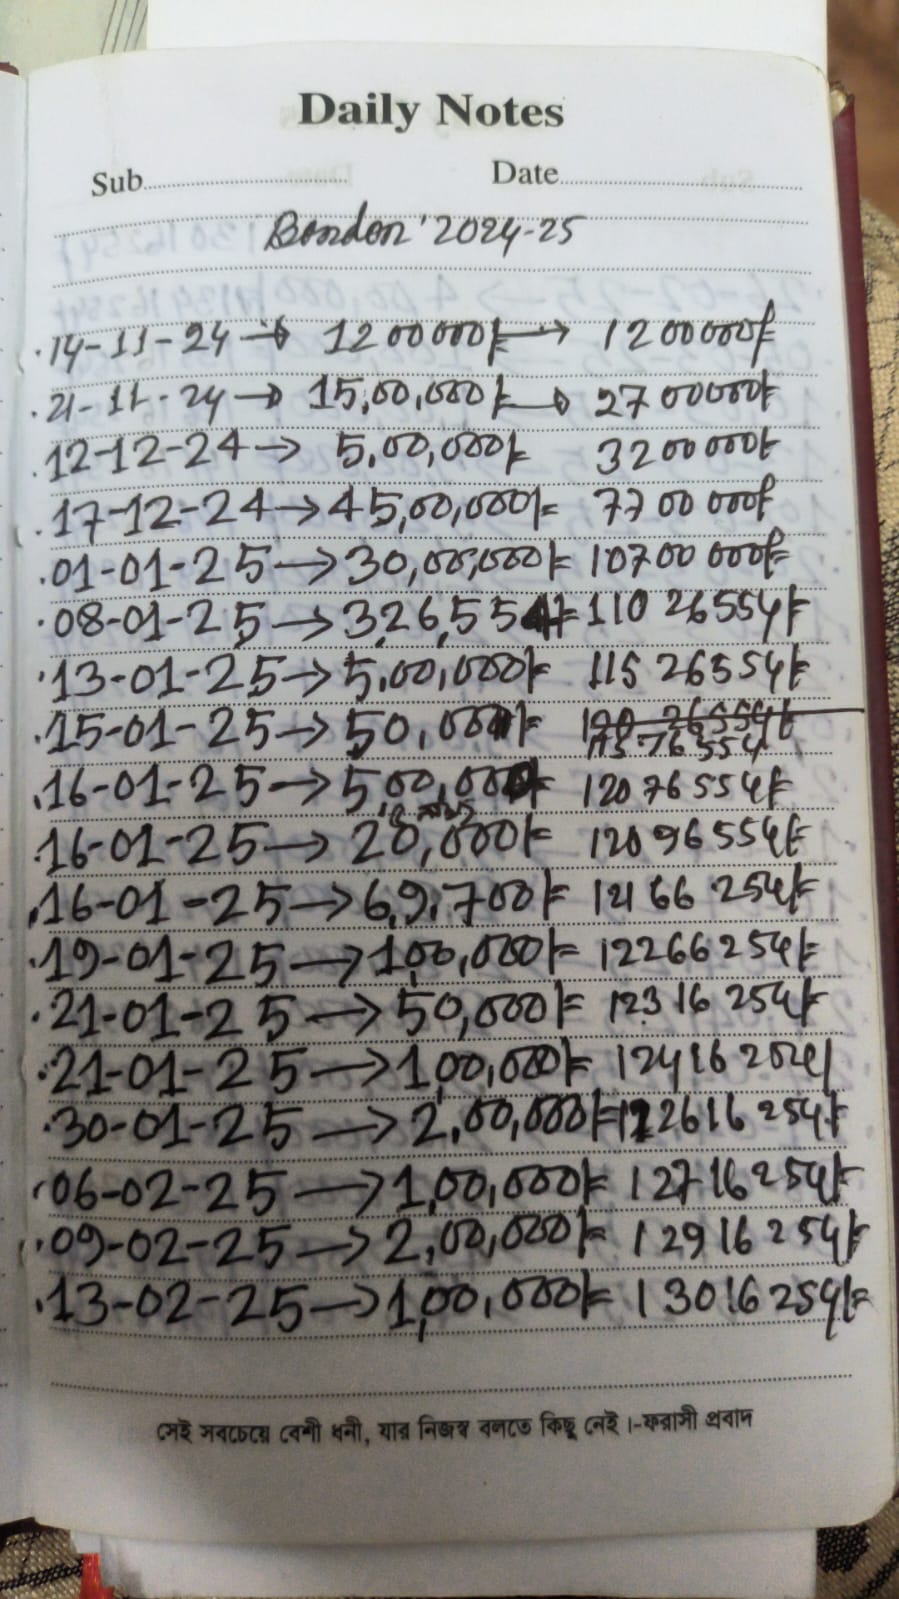 Daily Notes
Sub Date
Bondor' 2024-25
.14-11-24 → 1200000/= → 1200000/=
.21-11-24 → 15,00,000/= → 2700000/=
.12-12-24 → 5,00,000/= 3200000/=
.17-12-24 → 45,00,000/= 7700000/=
.01-01-25 → 30,00,000/= 10700000/=
.08-01-25 → 3,26,554/= 11026554/=
.13-01-25 → 5,00,000/= 11526554/=
.15-01-25 → 50,000/= 11576554/=
.16-01-25 → 5,00,000/= 12076554/=
.16-01-25 → 20,000/= 12096554/=
.16-01-25 → 69,700/= 12166254/=
.19-01-25 → 1,00,000/= 12266254/=
.21-01-25 → 50,000/= 12316254/=
.21-01-25 → 1,00,000/= 12416254/
.30-01-25 → 2,00,000/= 12616254/=
.06-02-25 → 1,00,000/= 12716254/=
.09-02-25 → 2,00,000/= 12916254/=
.13-02-25 → 1,00,000/= 13016254/=
সেই সবচেয়ে বেশী ধনী, যার নিজস্ব বলতে কিছু নেই।-ফরাসী প্রবাদ